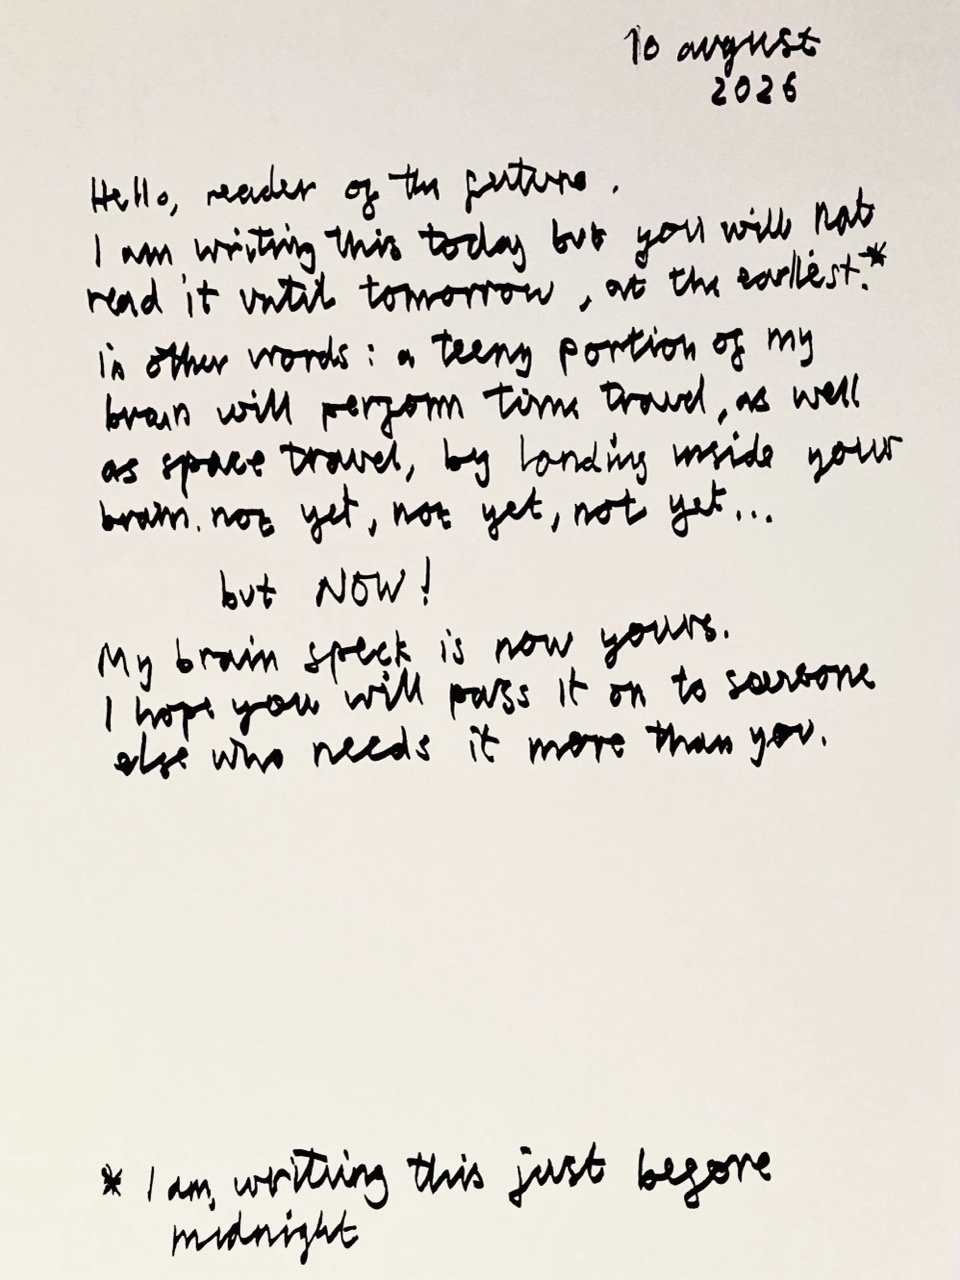 10 august
2026
Hello, reader of the future.
I am writing this today but you will not
read it until tomorrow, at the earliest.*
in other words: a teeny portion of my
brain will perform time travel, as well
as space travel, by landing inside your
brain. not yet, not yet, not yet...
but NOW!
My brain speck is now yours.
I hope you will pass it on to someone
else who needs it more than you.
* I am writing this just before
midnight